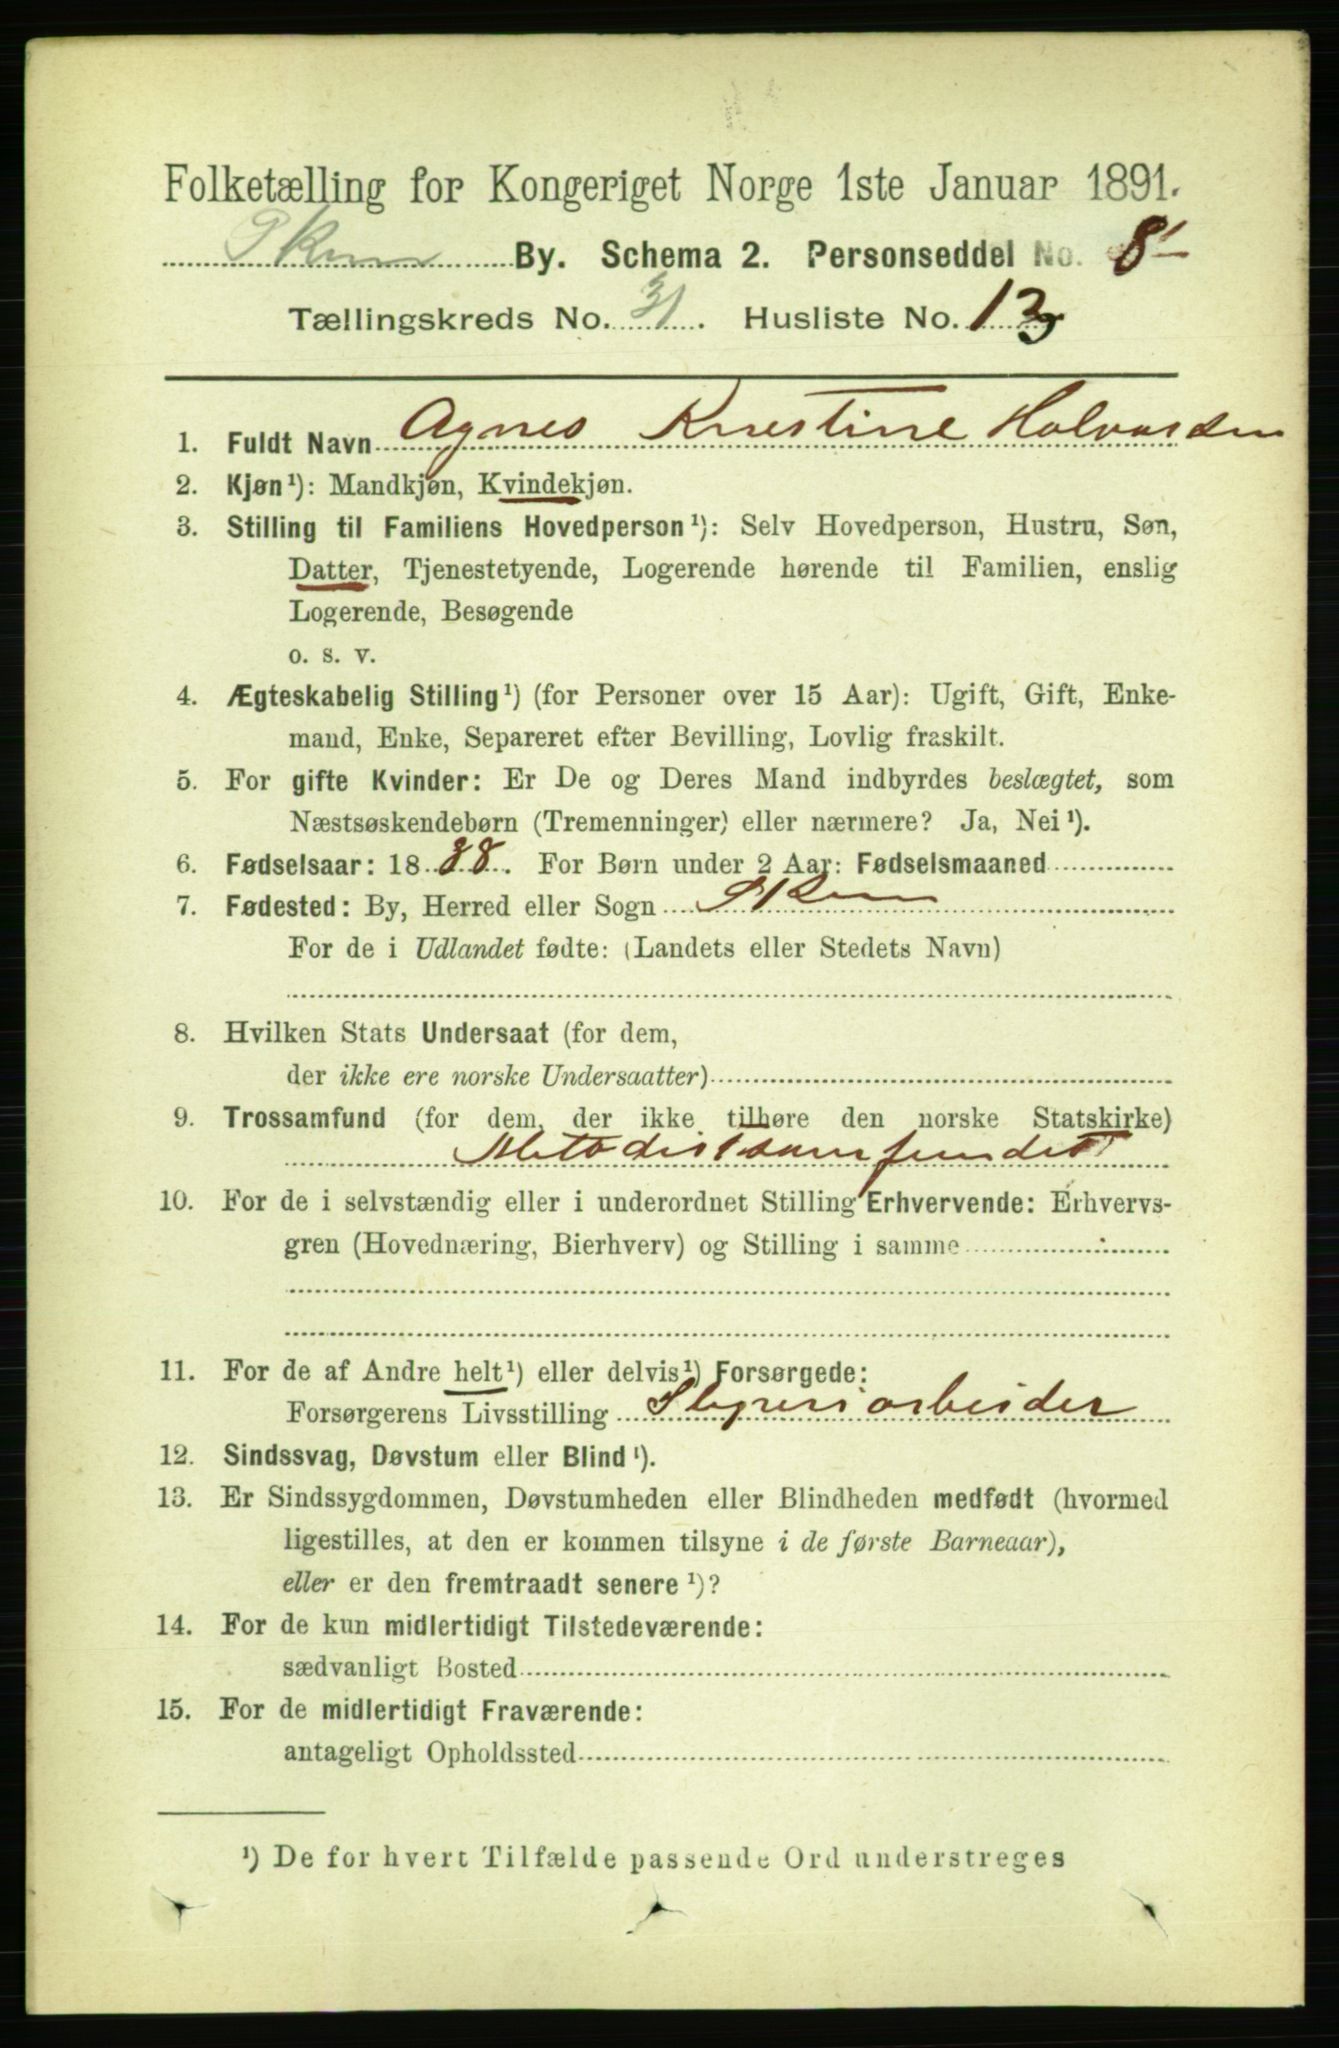 Folketælling for Kongeriget Norge 1ste Januar 1891.
Skien By. Schema 2. Personseddel No. 8
Tællingskreds No. 31. Husliste No. 13
1. Fuldt Navn Agnes Kristine Halvorsen
2. Kjøn¹): Mandkjøn, Kvindekjøn.
3. Stilling til Familiens Hovedperson¹): Selv Hovedperson, Hustru, Søn,
Datter, Tjenestetyende, Logerende hørende til Familien, enslig
Logerende, Besøgende
o. s. v.
4. Ægteskabelig Stilling¹) (for Personer over 15 Aar): Ugift, Gift, Enke-
mand, Enke, Separeret efter Bevilling, Lovlig fraskilt.
5. For gifte Kvinder: Er De og Deres Mand indbyrdes beslægtet, som
Næstsøskendebørn (Tremenninger) eller nærmere? Ja, Nei¹).
6. Fødselsaar: 1888. For Børn under 2 Aar: Fødselsmaaned
7. Fødested: By, Herred eller Sogn Skien
For de i Udlandet fødte: (Landets eller Stedets Navn)
8. Hvilken Stats Undersaat (for dem,
der ikke ere norske Undersaatter)
9. Trossamfund (for dem, der ikke tilhøre den norske Statskirke)
Metodistsamfundet
10. For de i selvstændig eller i underordnet Stilling Erhvervende: Erhvervs-
gren (Hovednæring, Bierhverv) og Stilling i samme
11. For de af Andre helt¹) eller delvis¹) Forsørgede:
Forsørgerens Livsstilling Sliperiarbeider
12. Sindssvag, Døvstum eller Blind¹).
13. Er Sindssygdommen, Døvstumheden eller Blindheden medfødt (hvormed
ligestilles, at den er kommen tilsyne i de første Barneaar),
eller er den fremtraadt senere¹)?
14. For de kun midlertidigt Tilstedeværende:
sædvanligt Bosted
15. For de midlertidigt Fraværende:
antageligt Opholdssted
¹) De for hvert Tilfælde passende Ord understreges